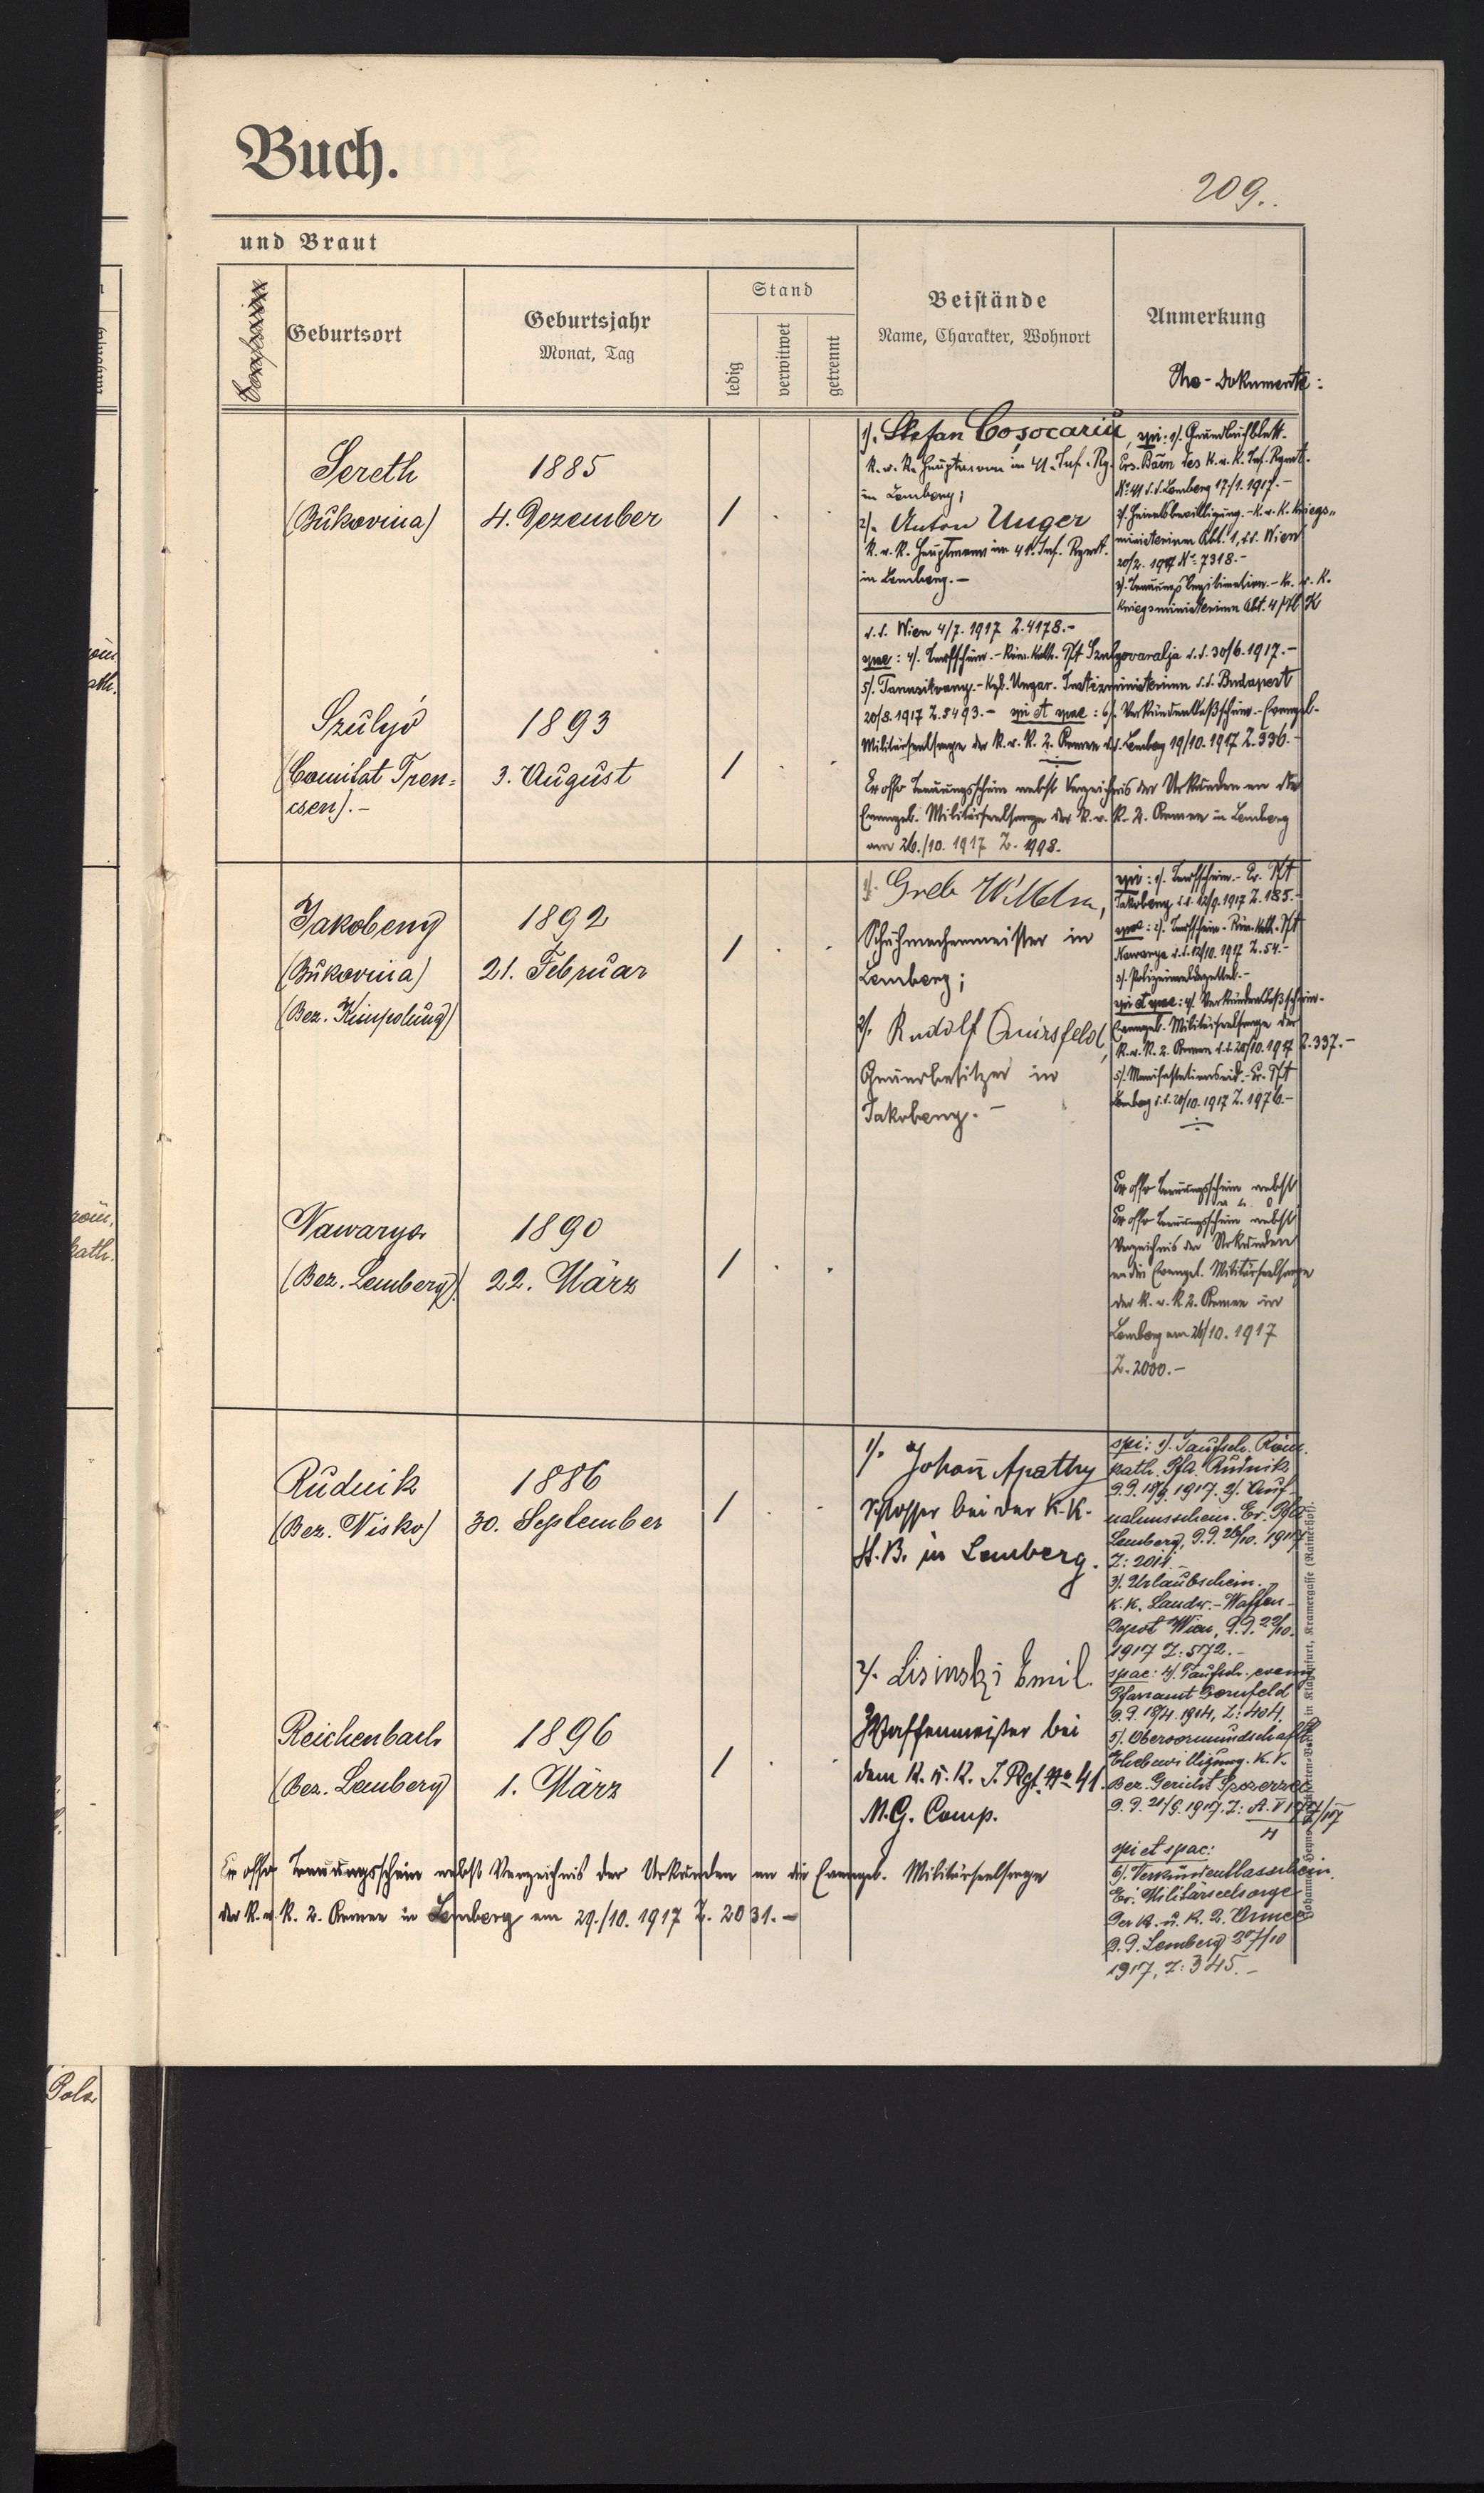 Buch.
209.
und Braut
Geburtsort
Geburtsjahr
Monat, Tag
Stand
ledig
verwitwet
getrennt
Beistände
Name, Charakter, Wohnort
Anmerkung
Ehe-Dokumente:
Sereth
(Bukovina)
1885
4. Dezember
1
1). Stefan Cosocariu,
K. u. K. Hauptmann in 41. Inf. Rg.
in Lemberg;
2). Anton Unger
K. u. K. Hauptmann im 41. Inf. Rgmt.
in Lemberg.-
spi: 1). Grundbuchblatt.-
Ers. Baon des K. u. K. Inf. Rgmt.
No 41 d. d. Lemberg 17/1. 1917.-
2). Heiratsbewilligung.- K. u. K. Kriegs-
ministerium Abt. 1, d. d. Wien
20/2. 1917 No 7318.-
3). Trauungs Legitimation.- K. u. K.
Kriegsministerium Abt. 4/
d. d. Wien 4/7. 1917 Z. 4178.-
spae: 4). Taufschein.- Röm. Kath. Pft Szulyovaralja d. d. 30/6. 1917.-
5). Kgl. Ungar. Justizministerium d. d. Budapest
20/8. 1917 Z. 5493.- spi et spae: 6). Verkündentlaßschein.- Evangel.
Militärseelsorge der K. u. K. 2. Armee d. d. Lemberg 19/10. 1917 Z. 336.-
Szulyó
(Comitat Tren-
csen).-
1893
3. August
1
Ex offo Trauungsschein nebst Verzeichnis der Urkunden an die
Evangel. Militärseelsorge der K. u. K. 2. Armee in Lemberg
am 26./10. 1917 Z. 1998.
Jakobeny
(Bukovina)
(Bez. Kimpolung)
1892
21. Februar
1
1). Greb Wilhelm,
Schuhmachermeister in
Lemberg;
2). Rudolf Quirsfeld,
in
Jakobeny.-
spi: 1). Taufschein.- Ev. Pft
Jakobeny d. d. 12/9. 1917 Z. 185.-
spae: 2). Taufschein.- Röm. Kath. Pft
Nawarya d. d. 12/10. 1917 Z. 54.-
3). Polizeimeldezettel.-
spi et spae: 4). Verkündentlaßschein.-
Evangel. Militärseelsorge der
K. u. K. 2. Armee d. d. 20/10. 1917 Z. 337.-
5). Manifestationseid.- Ev. Pft
Lemberg d. d. 20/10. 1917 Z. 1976.-
Nawarya
(Bez. Lemberg).
1890
22. März
1
Ex offo Trauungsschein nebst
Ex offo Trauungsschein nebst
Verzeichnis der Urkunden
an die Evangel. Militärseelsorge
der K. u. K. 2. Armee in
Lemberg am 26/10. 1917
Z. 2000.-
Rudnik
(Bez. Nisko)
1886
30. September
1
1). Johann Apathy
Schlosser bei der K. K.
St. B. in Lemberg.
spi: 1). Taufsch. Röm.
kath. Pfa. Rudnik
D. D. 18/9. 1917. 2). Auf-
nahmsschein. Ev. Pfa
Lemberg, D. D. 26/10. 1917
Z: 2011.-
3). Urlaubschein.
K. K. Landw.-Waffen-
Depot Wien, D. D. 22/10.
1917 Z: 572.-
Reichenbach
(Bez. Lemberg)
1896
1. März
1
2). Lisinski Emil.
Waffenmeister bei
dem K. u. K. I. Rgt. No 41.
M. G. Comp.
spae: 4). Taufsch. evang
Pfarramt Dornfeld
D. D. 18/4. 1914, Z: 404.
5). Obervormundschaftl.
Ehebewilligung. K. K.
Bez. Gericht
D. D. 21/9. 1917. Z:
spi et spae:
6). Verkündentlassschein.
Ev. Militärseelsorge
Der K. u. K. 2. Armee
D. D. Lemberg 27/10
1917, Z: 345.-
Ex offo Trauungsschein nebst Verzeichnis der Urkunden an die Evangel. Militärseelsorge
der K. u. K. 2. Armee in Lemberg am 29./10. 1917 Z. 2031.-
in Klagenfurt, Kramergasse (Rainerhof).
röm.
kath.
Pola